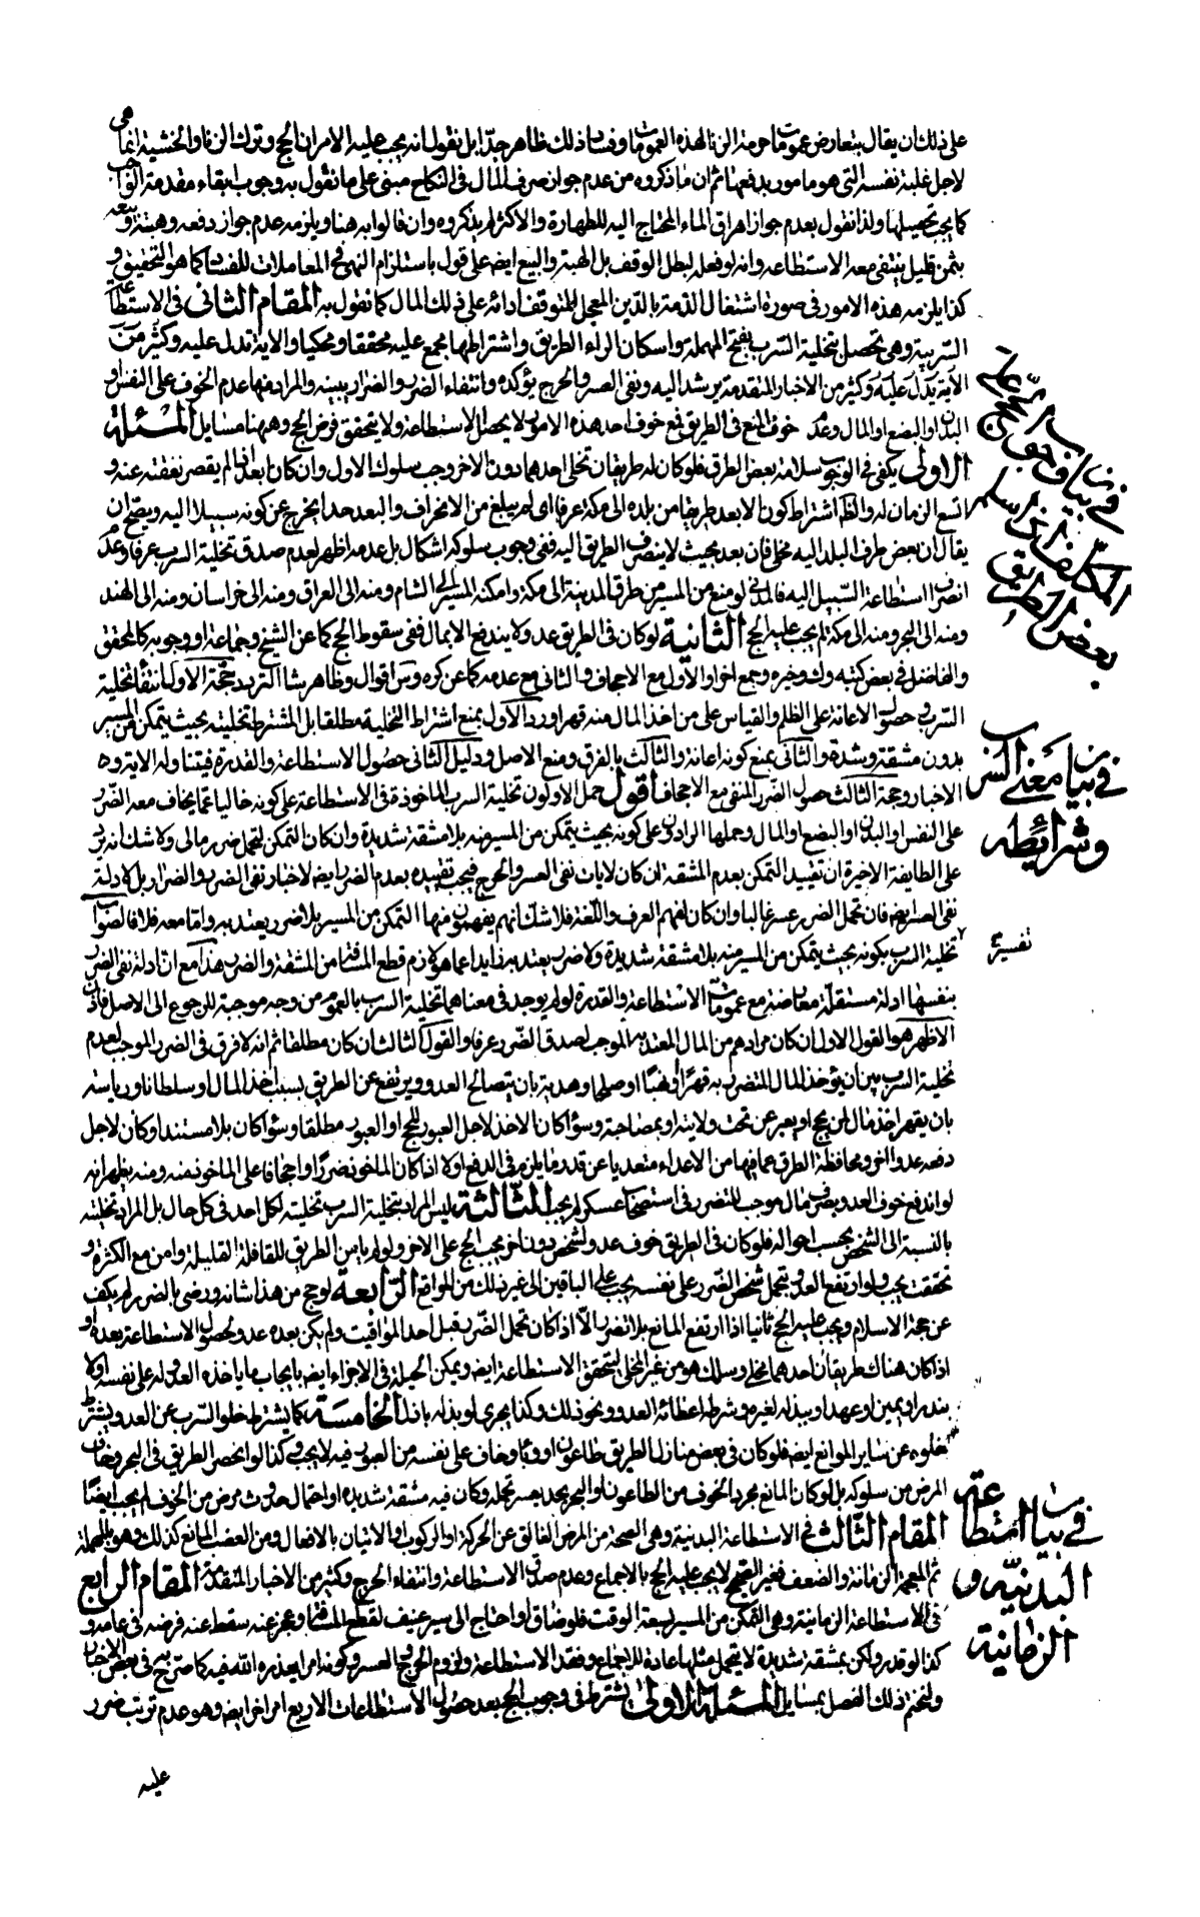 على ذلك ان يقال بتعارض عمومات حرمة الزنا لهذه العمومات وفساد ذلك ظاهر جدّا بل نقول انه يجب عليه الامران الحج وترك الزنا والخشية انما هى
لاجل غلبة نفسه التى هو مامور بدفعها ثم ان ما ذكروه من عدم جواز صرف المال فى النكاح مبنى على ما نقول به وجوب ابقاء مقدمة الواجب
كما يجب تحصيلها ولذا نقول بعدم جواز اهراق الماء المحتاج اليه للطهارة والاكثر لم يذكروه وان قالوا به هنا ويلزمه عدم جواز دفعه وهبته وبيعه
بثمن قليل ينتفى معه الاستطاعه وانه لو فعله لبطل الوقف بل الهبة والبيع ايضا على قول باستلزام النهى فى المعاملات للفساد كما هو التحقيق و
كذا يلزمه هذه الامور فى صورة اشتغال الذمة بالدّين المعجل المتوقف ادائه على ذلك المال كما نقول به المقام الثانى فى الاستطاعة
السّربية وهى تحصل بتخلية السّرب بفتح المهملة واسكان الراء الطريق واشتراطها مجمع عليه محققا ومحكيا والاية تدل عليه وكثير من
الاية يدل عليه وكثير من الاخبار المتقدمة يرشد اليه ونفى العسر والحرج يؤكده وانتفاء الضرر والضرار يبينه والمراد منها عدم الخوف على النفس او
البدن او البضع او المال وعدم خوف المنع فى الطريق فمع خوف احد هذه الامور لا يحصل الاستطاعة ولا يتحقق فرض الحج وههنا مسايل المسئلة
الاولى يكفى فى الوجوب سلامة بعض الطرق فلو كان له طريقان تخلى احدهما دون الاخر وجب سلوك الاول وان كان ابعد اذا لم يقصر نفقته عنه و
اتسع الزمان له والظ اشتراط كون الابعد طريقا من بلده الى مكة عرفا اى لم يبلغ من الانحراف والبعد حدا يخرج عن كونه سبيلا اليه ويصح ان
يقال ان بعض طرق البلد اليه مخلى فان بعد بحيث لا ينصرف الطريق اليه ففى وجوب سلوكه اشكال بل عدمه اظهر لعدم صدق تخلية السرب عرفا وعدم
انصراف استطاعة السّبيل اليه فالمدنى لو منع من المسير من طرق المدينة الى مكة وامكنه المسير الى الشام ومنه الى العراق ومنه الى خراسان ومنه الى الهند
ومنه الى البحر ومنه الى مكة لم يجب عليه الحج الثانية لو كان فى الطريق عدو لا يندفع الا بمال ففى سقوط الحج كما عن الشيخ وجماعة او وجوبه كالمحقق
والفاضل فى بعض كتبه وك وخيره وجمع اخر او الاول مع الاجحاف والثانى مع عدمه كما عن كره وس اقوال وظاهر شا التردد حجة الاول انتفاء تخلية
السّرب وحصول الاعانة على الظلم والقياس على من اخذ المال منه قهرا ورد الاول بمنع اشتراط التخلية مطلقا بل المشترط تخليته بحيث يتمكن من المسير
بدون مشقة وشدة والثانى بمنع كونه اعانة والثالث بالفرق ومنع الاصل ودليل الثانى حصول الاستطاعة والقدرة فيتناوله الاية وه
الاخبار وحجة الثالث حصول الضرر المنفى مع الاجحاف اقول حمل الاولون تخلية السرب الماخوذة فى الاستطاعة على كونه خاليا عما يخاف معه الضرر
على النفس او البدن او البضع او المال وحملها الرادون على كونه بحيث يتمكن من المسير منه بلا مشقة شديدة وان كان التمكن لتحمل ضرر مالى ولا شك انه يرد
على الطايفة الاخيرة ان تقييد التمكن بعدم المشقة ان كان لايات نفى العسر والحرج فيجب تقييده بعدم الضرر ايضا لاخبار نفى الضرر والضرار بل لادلة
نفى العسر ايضا فان تحمل الضرر عسر غالبا وان كان لفهم العرف واللّغة فلا شك انهم يفهمون منها التمكن من المسير بلا ضرر يعتد به واما معه فلا فالصواب
تفسير تخلية السرب بكونه بحيث يتمكن من المسير منه بلا مشقة شديدة ولا ضرر يعتد به زايدا عما هو لازم قطع المسافة من المشقة والضرر هذا مع ان ادلة نفى الضرر
بنفسها ادلة مستقلة معارضة مع عمومات الاستطاعة والقدرة لو لم يوجد فى معناهما تخلية السرب بالعموم من وجه موجبة للرجوع الى الاصل فاذن
الاظهر هو القول الاول ان كان مرادهم من المال المعتد به الموجب لصدق الضرر عرفا والقول الثالث ان كان مطلقا ثم انه لا فرق فى الضرر الموجب لعدم
تخلية السرب بين ان يؤخذ المال المتضرر به قهرا او غصبا او صلحا وهدية بان يتصالح العدو ويرتفع عن الطريق بسبب اخذ المال او سلطانا ورياسة
بان يقهر اخذ مال لمن يحج او يعبر عن تحت ولايته او بمصاحبة وسواء كان الاخذ لاجل العبور للحج او العبور مطلقا وسواء كان بلا مستند او كان لاجل
دفعه عدوا اخر ومحافظة الطرق عما فيها من الاعداء متعديا عن قدر ما يلزم فى الدفع او لا اذا كان الماخوذ ضررا واجحافا على الماخوذ منه ومنه يظهر انه
لو اندفع خوف العدو بصرف مال موجب للتضرر فى استصحاب عسكر لم يجب الثالثة ليس المراد بتخلية السرب تخليته لكل احد فى كل حال بل المراد تخليته
بالنسبة الى الشخص بحسب احواله فلو كان فى الطريق خوف عدو لشخص دون اخر يجب الحج على الاخر ولو لم يامن الطريق للقافلة القليلة وامن مع الكثرة و
تحققت يجب ولو ارتفع العدو بتحمل شخص الضرر على نفسه يجب على الباقين الى غير ذلك من المواقع الرابعة لو حج من هذا شانه ورضى بالضرر لم يكف
عن حجة الاسلام ويجب عليه الحج ثانيا اذا ارتفع المانع بلا تضرر الّا اذا كان تحمل الضرر قبل احد المواقيت ولم يكن بعده عدو لحصول الاستطاعة بعده او
اذا كان هناك طريقان احدهما مخلى وسلك هو من غير المخلى لتحقق الاستطاعة ايضا ويمكن الحيلة فى الاجزاء ايضا بايجاب ما ياخذه العدو له على نفسه اولا
بنذر او يمين او عهد او يبذله لغيره وشرط اعطائه العدو ونحو ذلك وكذا يجرى لو بذله باذل الخامسة كما يشترط خلو السّرب عن العدو يشترط
خلوه عن ساير الموانع ايضا فلو كان فى بعض منازل الطريق طاعون او وباء وخاف على نفسه من العبور فيه لا يجب وكذا لو انحصر الطريق فى البحر وخاف
المرض من سلوكه بل لو كان المانع مجرد الخوف من الطاعون او البحر بحد يعسر تحمله وكان فيه مشقة شديدة او احتمال حدوث مرض من الخوف لم يجب ايضا
المقام الثالث فى الاستطاعة البدنية وهى الصحة من المرض العائق عن الحركة او الركوب او الاتيان بالافعال ومن العضب المانع كذلك وهو بالمهملة
ثم المعجمة الزمانة والضعف فغير الصحيح لا يجب عليه الحج بالاجماع وعدم صدق الاستطاعة وانتفاء الحرج وكثير من الاخبار المتقدمة المقام الرابع
فى الاستطاعة الزمانية وهى التمكن من المسير بسعة الوقت فلو ضاق او احتاج الى سير عنيف لقطع المسافة وعجز عنه سقط عنه فرضه فى عامه و
كذا لو قدر ولكن بمشقة شديدة لا يتحمل مثلها عادة للاجماع وفقد الاستطاعة ولزوم الحرج والعسر وكونه امرا يعذره الله فيه كما صرّح به فى بعض الاخبار
ولنختم ذلك الفصل بمسايل المسئلة الاولى يشترط فى وجوب الحج بعد حصول الاستطاعات الاربع امر اخر ايضا وهو عدم ترتب ضرر
عليه
فى بيان وجوب الحج على
المكلف ان سلم
بعض الطريق
فى بيان معنى السرب
وشرائطه
فى بيان استطاعة
البدنيّه و
الزمانية